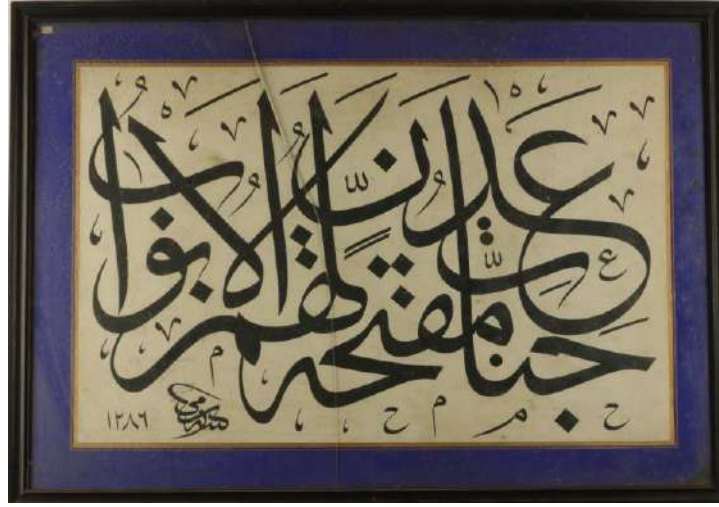 جنات عدن مفتحة لهم الابواب
١٢٨٦